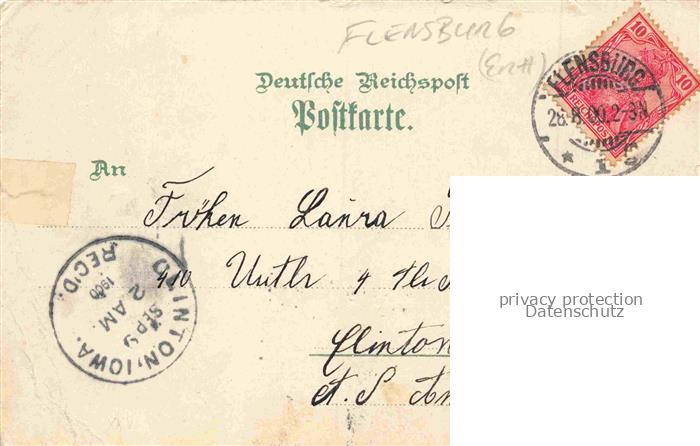 FLENSBURG
Deutsche Reichspost
Postkarte.
10 10
REICHSPOST
FLENSBURG
28.8.00.2-3N
* 1 g
An
Fröhen Laura
410 4 th
Clinton
N. S. Am
CLINTON, IOWA.
SEP 9
2 AM
1900
REC'D.
privacy protection
Datenschutz